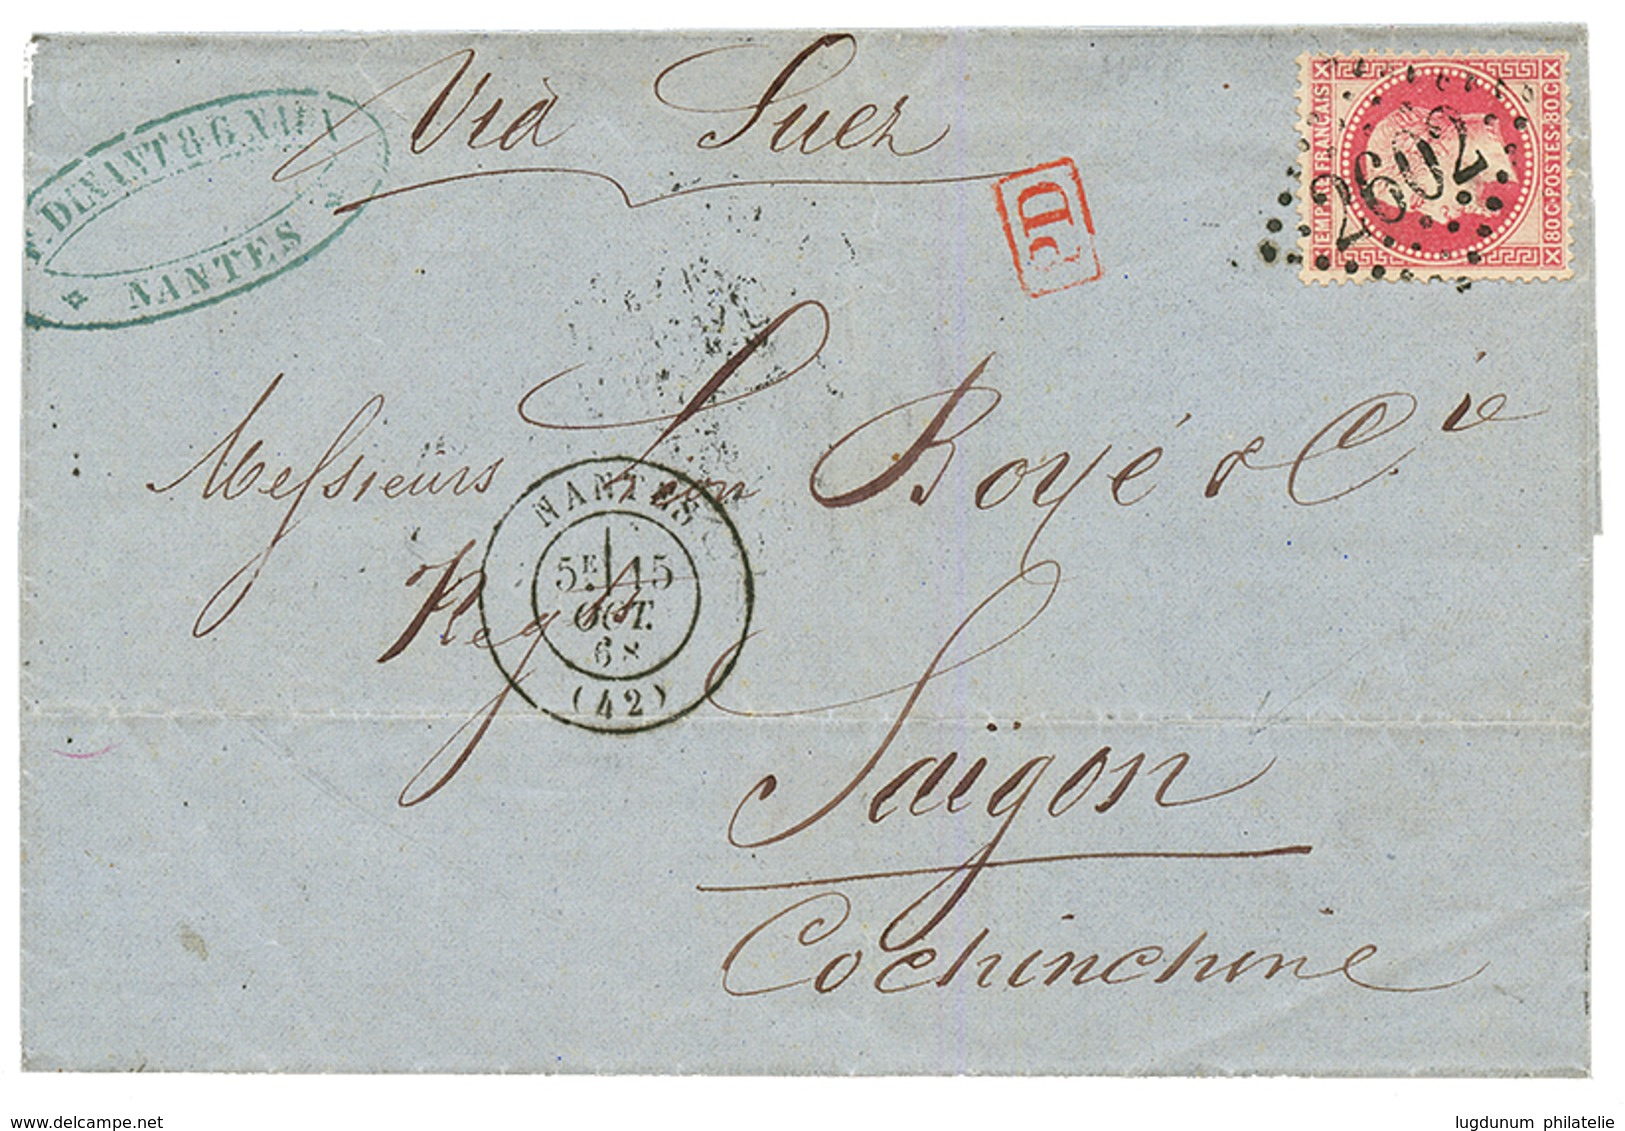 Vià Suez
DINANT & G.
NANTES
PD
EMPIRE FRANÇAIS
80 C· POSTES·80 C·
2602
Messieurs Léon Boyé & Cie
Negts
NANTES
5E 15
OCT.
68
(42)
Saïgon
Cochinchine
www.delcampe.net
lugdunum philatelie